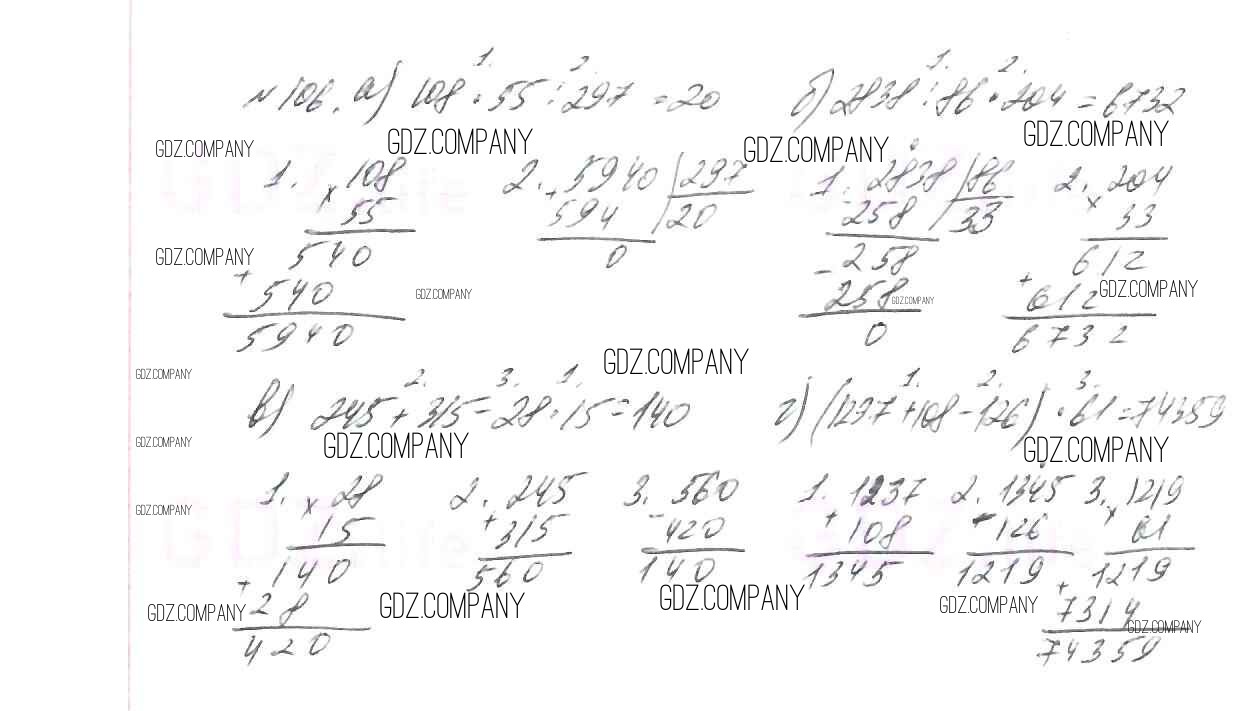 № 106. а) 108 · 55 : 297 = 20
1. 2.
GDZ.COMPANY
GDZ.COMPANY
1. × 108
55
540
+ 540
5940
GDZ.COMPANY
GDZ.COMPANY
2. - 5940 | 297
594 | 20
0
б) 2838 : 86 · 204 = 6732
1. 2.
GDZ.COMPANY
GDZ.COMPANY
1. - 2838 | 86
258 | 33
- 258
258
0
GDZ.COMPANY
2. × 204
33
612
+ 612
6732
GDZ.COMPANY
GDZ.COMPANY
GDZ.COMPANY
в) 245 + 315 - 28 · 15 = 140
2. 3. 1.
GDZ.COMPANY
GDZ.COMPANY
1. × 28
15
140
+ 28
420
GDZ.COMPANY
GDZ.COMPANY
2. + 245
315
560
GDZ.COMPANY
3. - 560
420
140
GDZ.COMPANY
г) (1237 + 108 - 126) · 61 = 74359
1. 2. 3.
GDZ.COMPANY
1. + 1237
108
1345
2. - 1345
126
1219
GDZ.COMPANY
3. × 1219
61
1219
+ 7314
74359
GDZ.COMPANY